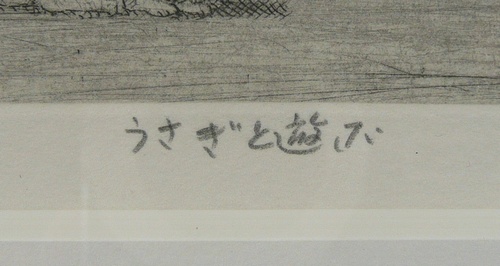 うさぎと遊ぶ